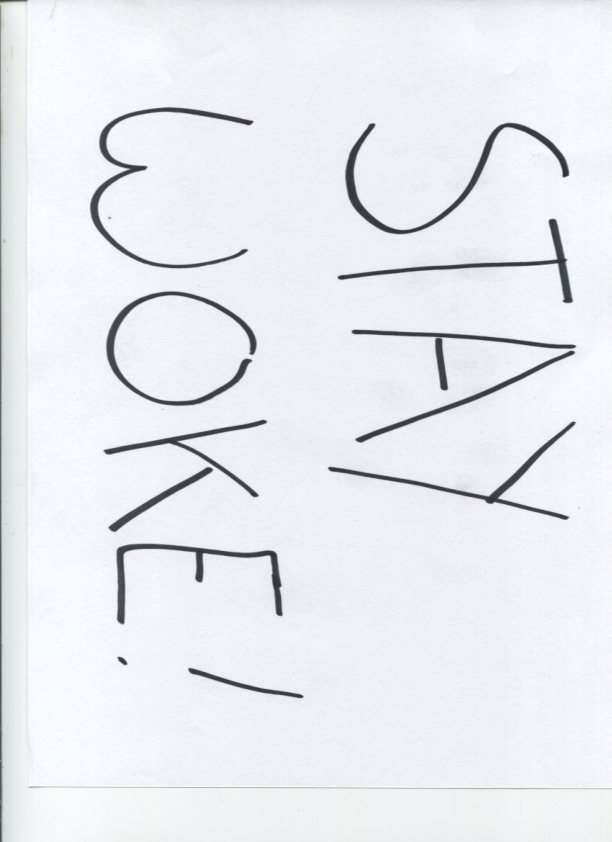 STAY
WOKE!